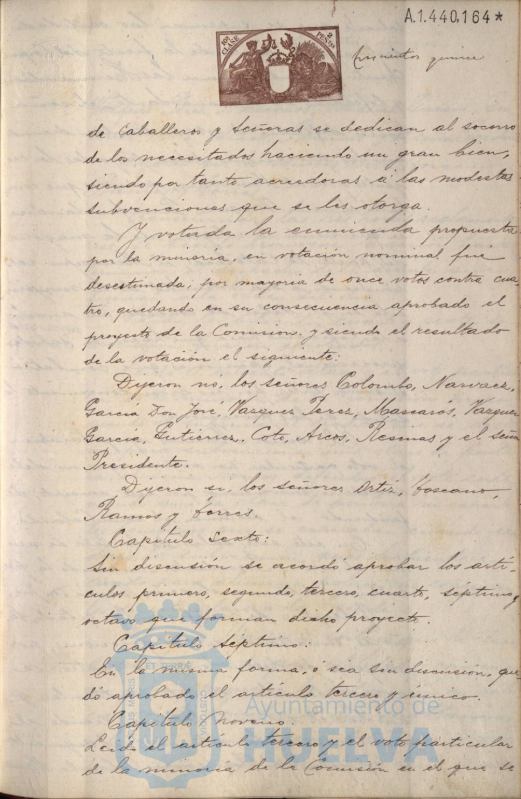 A.1.440.164*
10ª CLASE 2 PESETAS
trescientos quince
de Caballeros y Señoras se dedican al socorro
de los necesitados haciendo un gran bien,
siendo por tanto acreedoras á las modestas
subvenciones que se les otorga.
Y votada la enmienda propuesta
por la minoría, en votación nominal fué
desestimada, por mayoría de once votos contra cua-
tro, quedando en su consecuencia aprobado el
proyecto de la Comision, y siendo el resultado
de la votación el siguiente:
Dijeron no, los señores Colombo, Narvaez,
García Don José, Vazquez Perez, Mascarós, Vazquez
García, Gutierrez, Coto, Arcos, Resmas y el señor
Presidente.
Dijeron si, los señores Ortiz, Toscano,
Ramos y Torres.
Capítulo Sexto:
Sin discusión se acordó aprobar los artí-
culos primero, segundo, tercero, cuarto, séptimo y
octavo que forman dicho proyecto.
Capítulo Séptimo:
En la misma forma, ó sea sin discusión, que-
dó aprobado el artículo tercero y único.
Capítulo Noveno:
Leido el artículo tercero y el voto particular
de la minoria de la Comisión en el que se
Ayuntamiento de
HUELVA